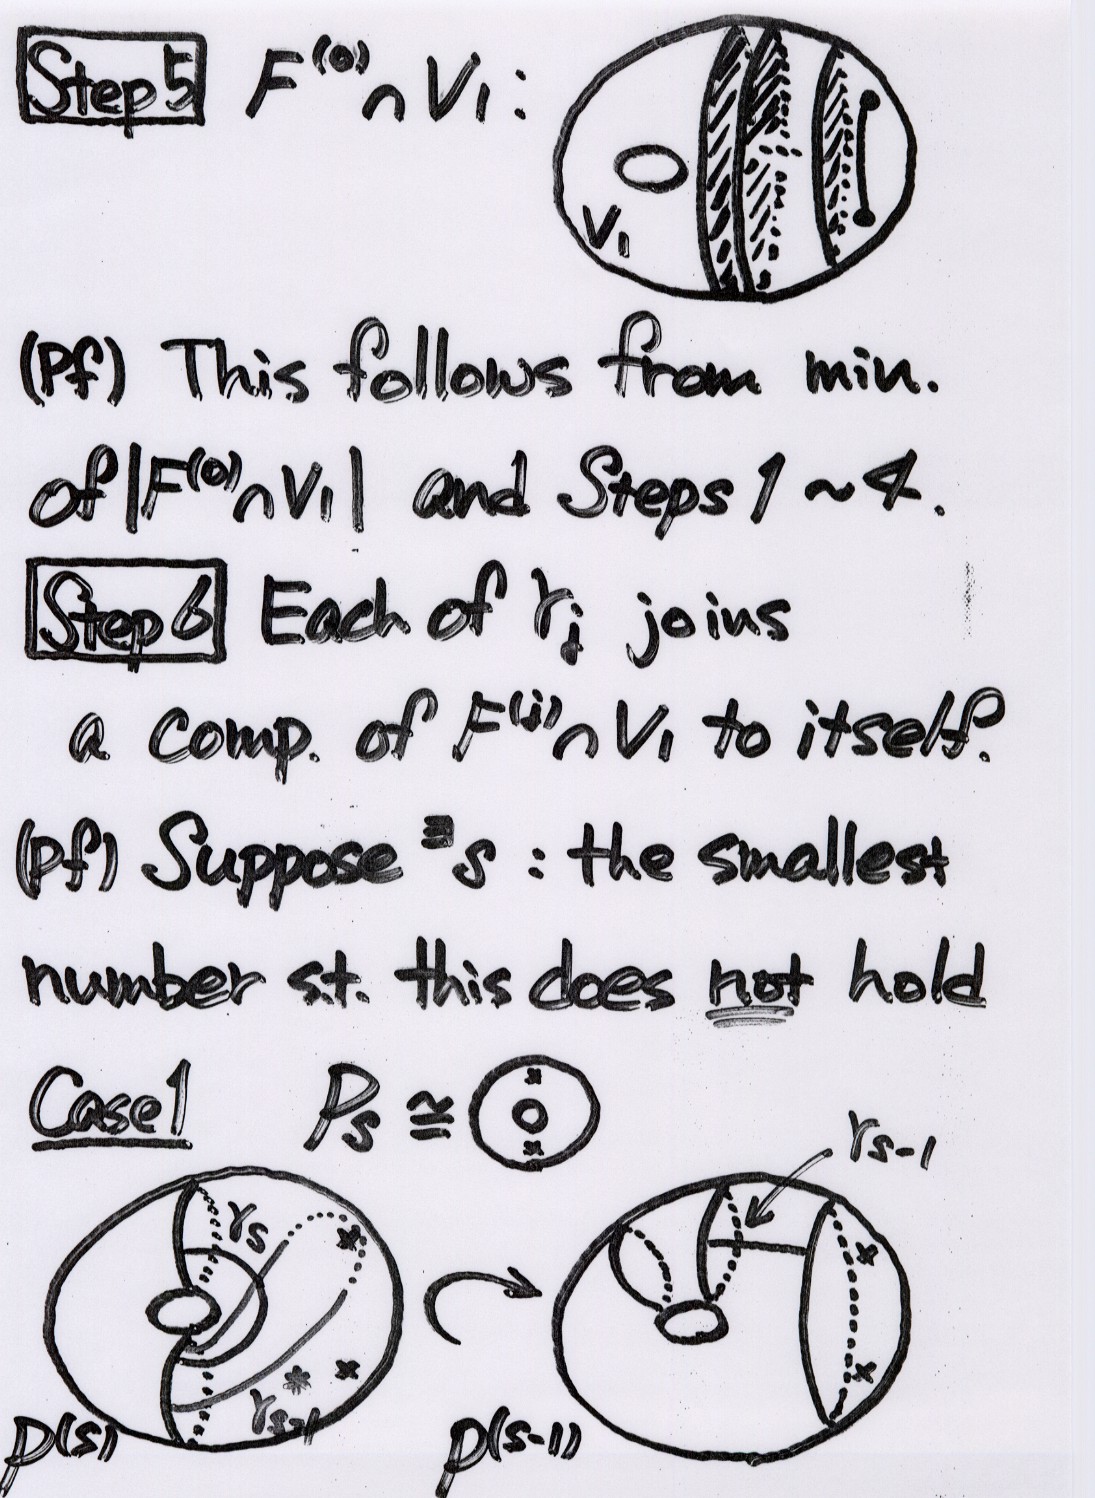 Step 5 F^(0) ∩ V₁ :
V₁
(Pf) This follows from min.
of |F^(0) ∩ V₁| and Steps 1 ~ 4.
Step 6 Each of γⱼ joins
a comp. of F^(j) ∩ V₁ to itself.
(pf) Suppose ∃s : the smallest
number s.t. this does not hold
Case 1 Pₛ ≅
γₛ₋₁
γₛ
γ*ₛ₋₁
p(s) p(s-1)